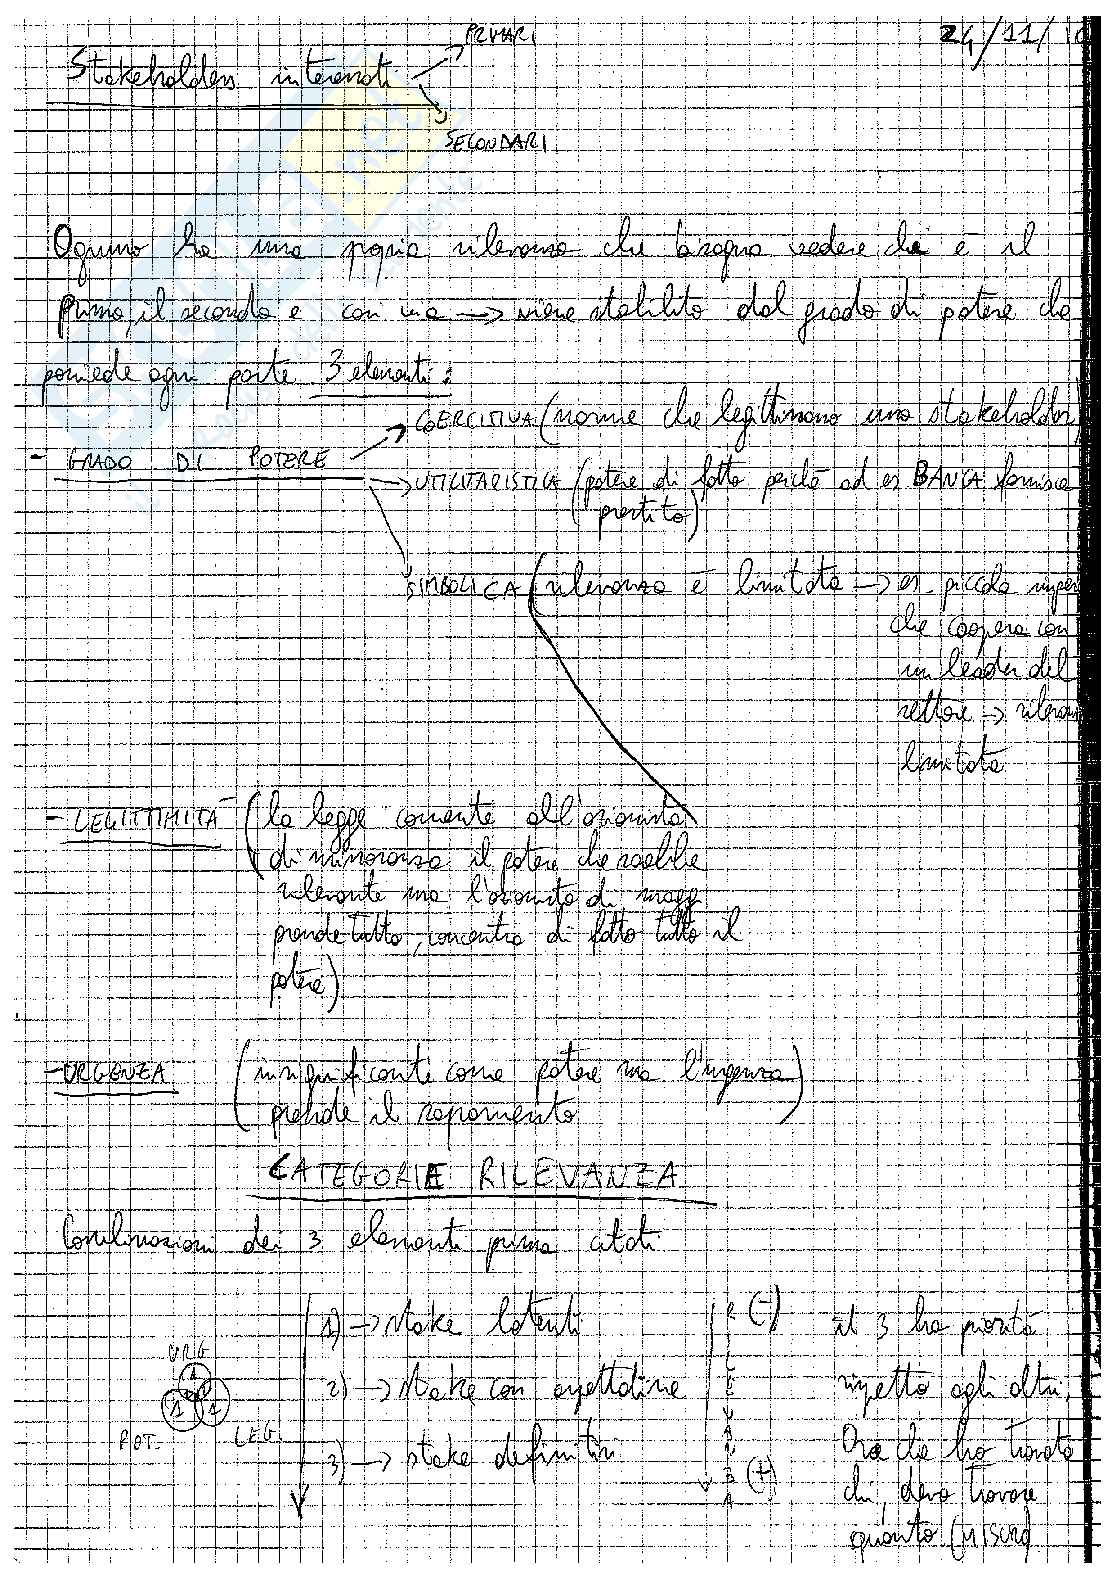 24/11/10
PRIMARI
Stakeholders interessati
SECONDARI
Ognuno ha una propria rilevanza che bisogna vedere chi è il
primo, il secondo e così via → viene stabilito dal grado di potere che
possiede ogni parte 3 elementi:
COERCITIVA (norme che legittimano uno stakeholder)
- GRADO DI POTERE
→ UTILITARISTICA (potere di fatto perché ad es BANCA fornisce
prestito)
SIMBOLICA (rilevanza è limitata → es. piccola impre
che coopera con
un leader del
settore → rilevan
limitata
- LEGITTIMITÀ (la legge consente all'azionista
di minoranza il potere che sarebbe
rilevante ma l'azionista di magg
prende tutto, concentra di fatto tutto il
potere)
- URGENZA (insignificante come potere ma l'urgenza)
prende il sopravvento
CATEGORIE RILEVANZA
Combinazioni dei 3 elementi prima citati
1) → stake latenti (-) il 3 ha priorità
URG
2) → stake con aspettative rispetto agli altri.
POT. LEG.
3) → stake definitivi (+) Ora che ho trovato
RILEVANZA
chi, devo trovare
quanto (MISURA)